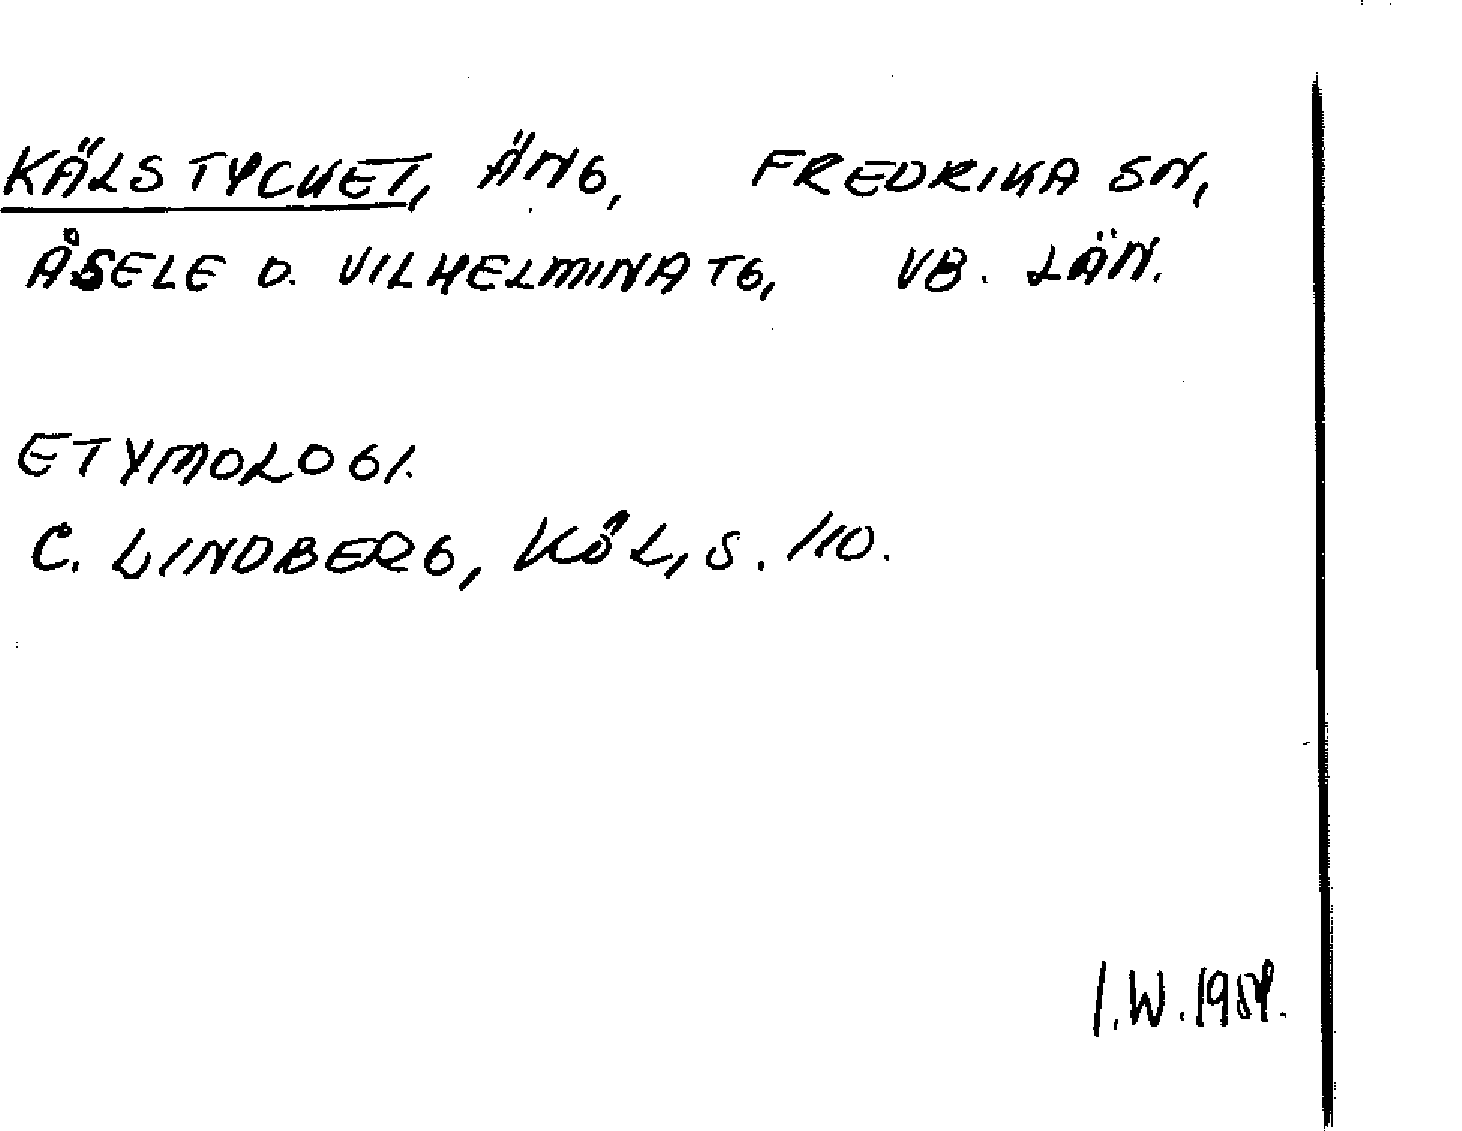 KÄLSTYCKET, ÄNG, FREDRIKA SN,
ÅSELE O. VILHELMINA TG, VB. LÄN.
ETYMOLOGI.
C. LINDBERG, KÖL, S. 110.
I.W. 1984.